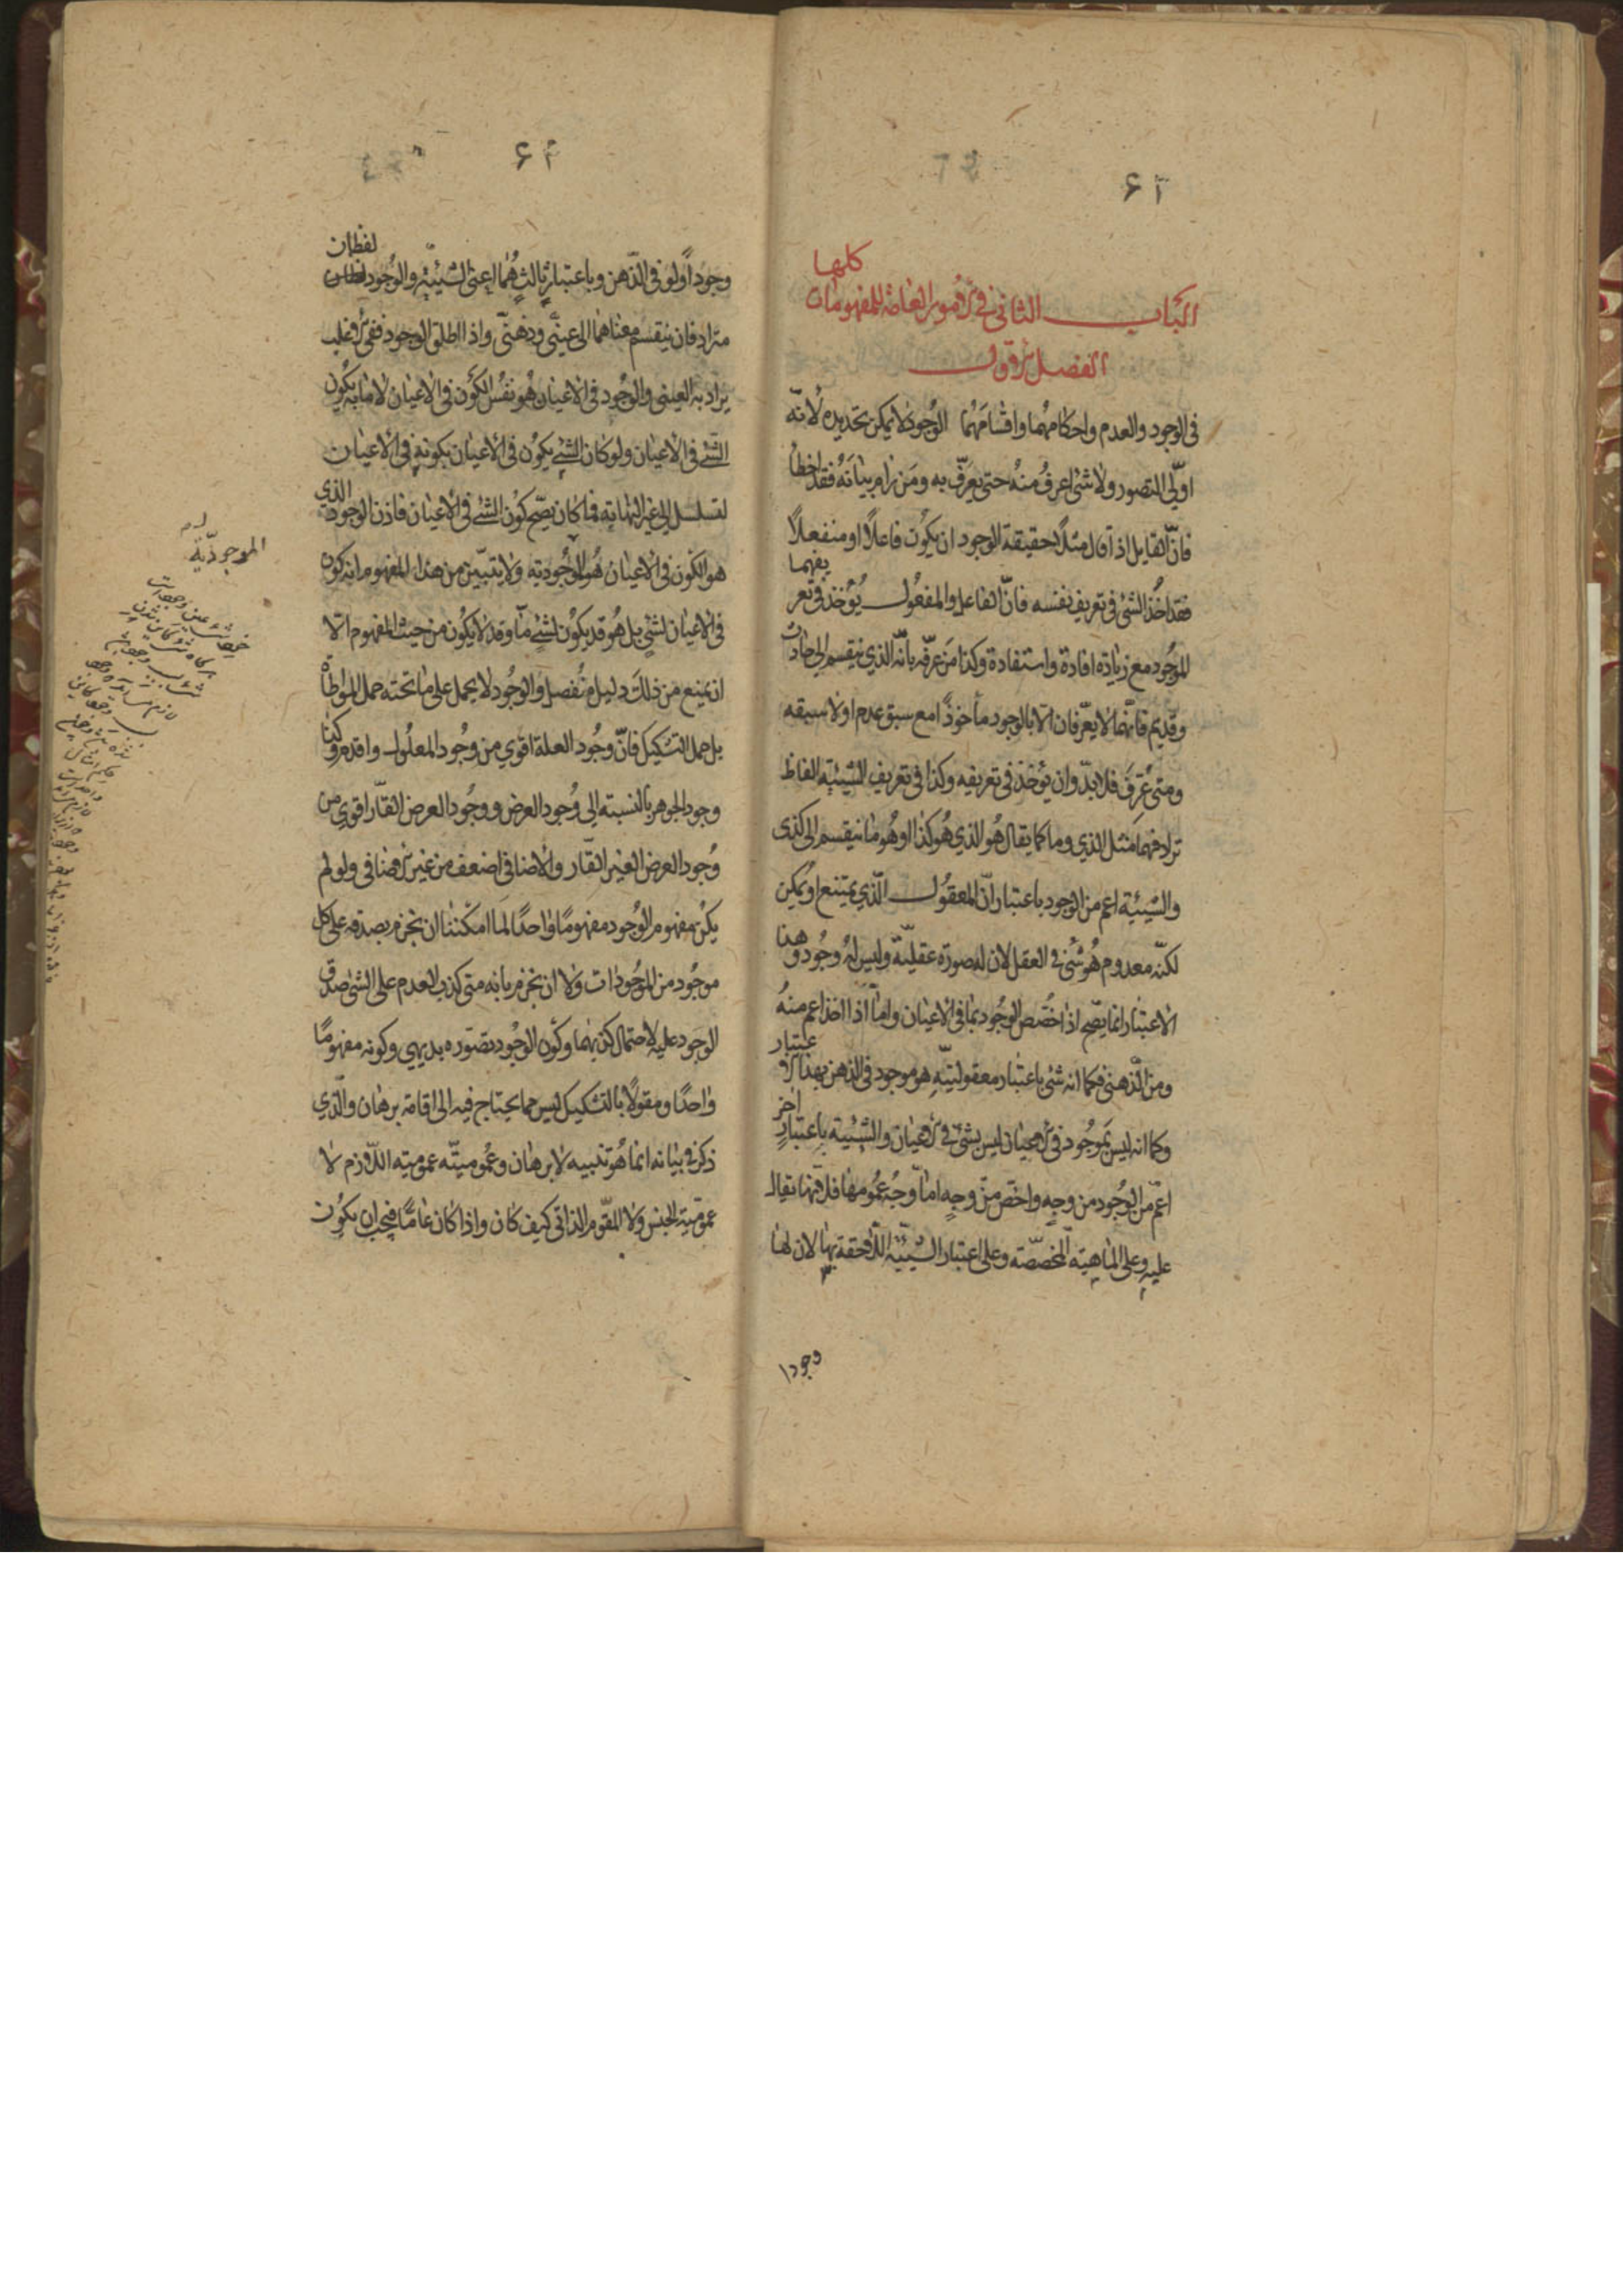 ۶۲
كلها
الباب الثاني في الامور العامة للمفهومات
الفصل الاول
في الوجود والعدم واحكامهما واقسامهما الوجود لا يمكن تحديده لانه
اولي التصور ولا شئ اعرف منه حتى يعرف به ومن رام بيانه فقد اخطأ
فان القايل اذا قال مثلا حقيقة الوجود ان يكون فاعلا او منفعلا
فقد اخذ الشئ في تعريف نفسه فان الفاعل والمفعول يؤخذ في تعر يفهما
الموجود مع زيادة افادة واستفادة وكذا من عرفه بانه الذي ينقسم الى حادث
وقديم فانهما لا يعرفان الا بالوجود مأخوذا مع سبق عدم او لا سبقه
ومتى عرف فلا بد وان يؤخذ في تعريفه وكذا في تعريف الشيئية الفاظ
ترادفهما مثل الذي وما كما يقال هو الذي هو كذا او هو ما ينقسم الى كذى
والشيئية اعم من الوجود باعتبار ان المعقول الذي يمتنع او يمكن
لكنه معدوم هو شئ في العقل لان له صورة عقلية وليس له وجود وهذا
الاعتبار انما يصح اذا خصص الوجود بما في الاعيان واما اذا اخذ اعم منه
ومن الذهني فكما انه شئ باعتبار معقوليته هو موجود في الذهن بهذا الا عتبار
وكما انه ليس بموجود في الاعيان ليس بشئ في الاعيان والشيئية باعتبار اخر
اعم من الوجود من وجه واخص من وجه اما وجه عمومها فلانها تقال
عليه وعلى الماهية المخصصة وعلى اعتبار الشيئية اللاحقة بها لان لها
وجودا
۶۳
وجودا ولو في الذهن وباعتبار ثالث هما اعني الشيئية والوجود لفظان
مترادفان ينقسم معناهما الى عيني وذهني واذا اطلق الوجود ففي الاغلب
يراد به العيني والوجود في الاعيان هو نفس الكون في الاعيان لا ما به يكون
الشئ في الاعيان ولو كان الشئ يكون في الاعيان بكونه في الاعيان
لتسلسل الى غير النهاية فما كان يصح كون الشئ في الاعيان فاذن الوجود الذي
هو الكون في الاعيان هو الموجودية ولا يتبين من هذا المفهوم انه كون
في الاعيان لشئ بل هو قد يكون لشئ ما وقد لا يكون من حيث المفهوم الا
ان يمنع من ذلك دليل منفصل والوجود لا يحمل على ما تحته حمل المواطأة
بل حمل التشكيك فان وجود العلة اقوي من وجود المعلول واقدم وكذا
وجود الجوهر بالنسبة الى وجود العرض ووجود العرض القار اقوي من
وجود العرض الغير القار والاضافي اضعف من غير الاضافي ولو لم
يكن مفهوم الوجود مفهوما واحدا لما امكننا ان نجزم بصدقه على كل
موجود من الموجودات ولا ان نجزم بانه متى كذب العدم على الشئ صدق
الوجود عليه لاحتمال كذبهما وكون الوجود تصوره بديهي وكونه مفهوما
واحدا ومقولا بالتشكيك ليس مما يحتاج فيه الى اقامة برهان والذي
ذكر في بيانه انما هو تنبيه لا برهان وعموميته عمومية اللازم لا
عمومية الجنس ولا المقوم الذاتي كيف كان واذا كان عاما فيجب ان يكون
الموجودية